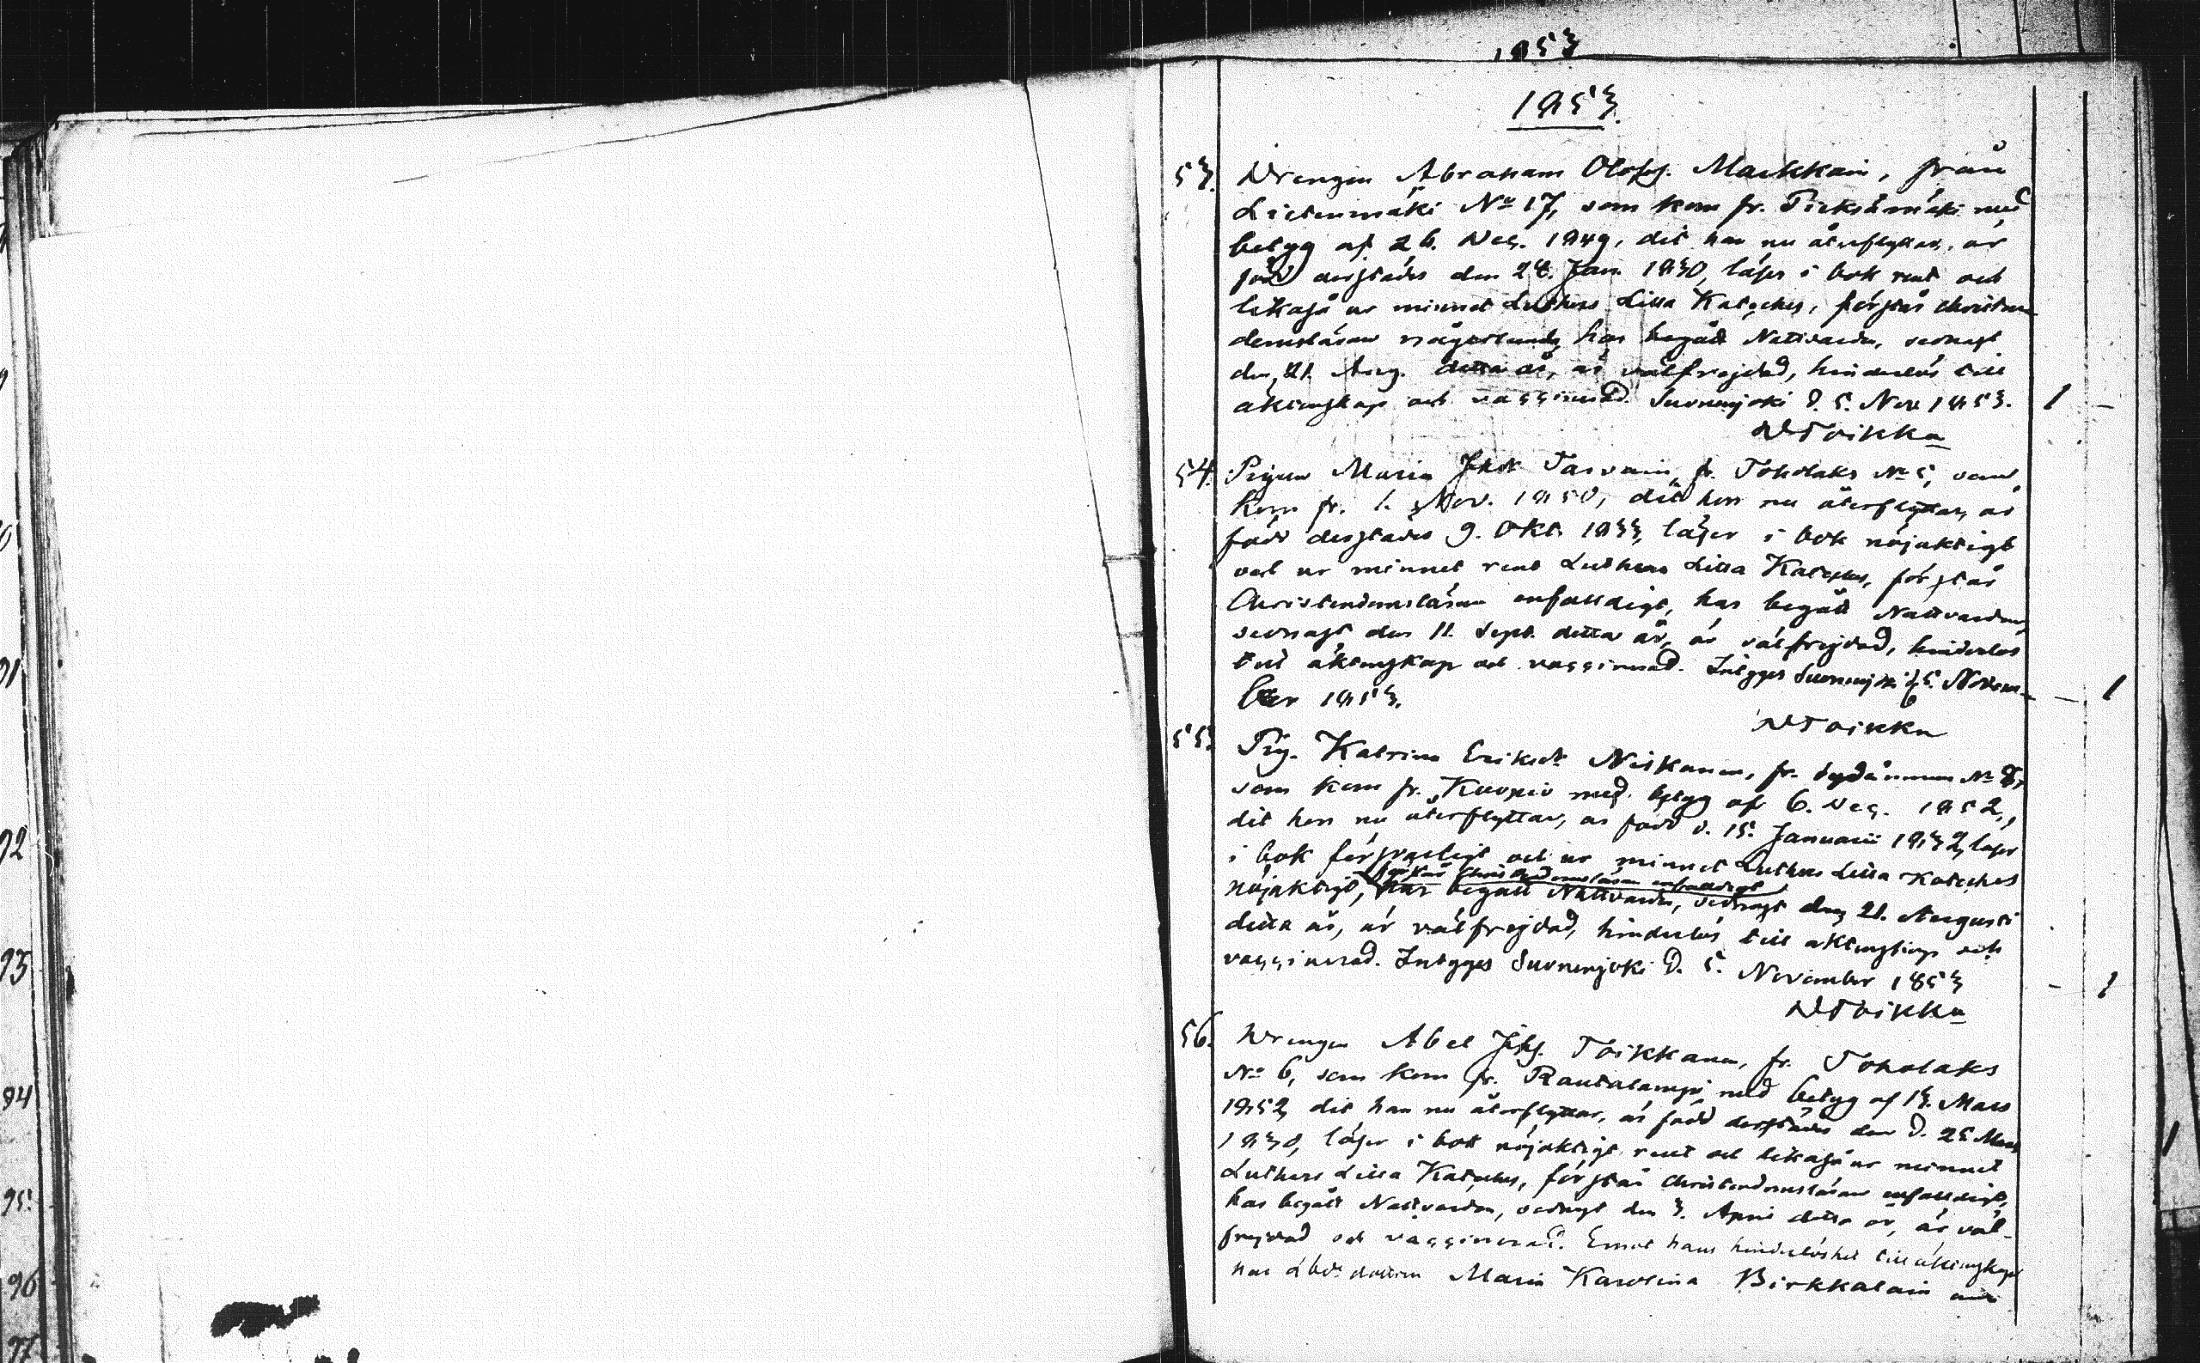 1853
1853.
53. Drengen Abraham Olofss. Markkain, från
Lietenmäki No 17, som kom fr. Pieksämäki med
betyg af 26. Dec. 1849, dit han nu återflyttar, är
född derstädes den 24. Jan. 1830, läser i bok rent och
likaså ur minnet Luthers Lilla Kateches, förstår christen-
domsläran någorlunda, har begått Nattvarden, sednast
den 21. Aug. detta år, är välfrejdad, hinderlös till
äktenskap och vaccinerad. Suonenjoki d. 5. Nov. 1853. 1 —
DToikka
54. Pigan Maria Joh.dr Tarvain, fr. Toholaks No 5, som
kom fr. 1. Nov. 1850, dit hon nu återflyttar, är
född derstädes 9. Okt. 1833, läser i bok nöjaktigt
och ur minnet rent Luthers Lilla Kateches, förstår
Christendomsläran enfaldigt, har begått Nattvarden,
sednast den 11. Sept. detta år, är välfrejdad, hinderlös
till äktenskap och vaccinerad. Intygas Suonenjoki d. 5. Novem-
ber 1853. — 1
DToikka
55. Pig. Katrina Eriksdr Niskanen, fr. Sydänmaa No 8,
som kom fr. Kuopio med betyg af 6. Dec. 1852,
dit hon nu återflyttar, är född d. 15. Januarii 1832, läser
i bok försvarligt och ur minnet Luthers Lilla Kateches
förstår Christendomsläran enfaldigt
nöjaktigt, har begått Nattvarden, sednast den 21. Augusti
detta år, är välfrejdad, hinderlös till äktenskap och
vaccinerad. Intygas Suonenjoki d. 5. November 1853 - 1
DToikka
56. Drengen Abel Johs. Toikkanen, fr. Toholaks
No 6, som kom fr. Rautalampi med betyg af 13. Mars
1852, dit han nu återflyttar, är född derstädes den d. 25 Mars
1830, läser i bok nöjaktigt rent och likaså ur minnet
Luthers Lilla Kateches, förstår Christendomsläran enfaldigt,
har begått Nattvarden, sednast den 3. April detta år, är väl-
frejdad och vaccinerad. Emot hans hinderlöshet till äktenskap
har dottren Maria Karolina Birkkalain
91
92
93
94
95.
96
97
1